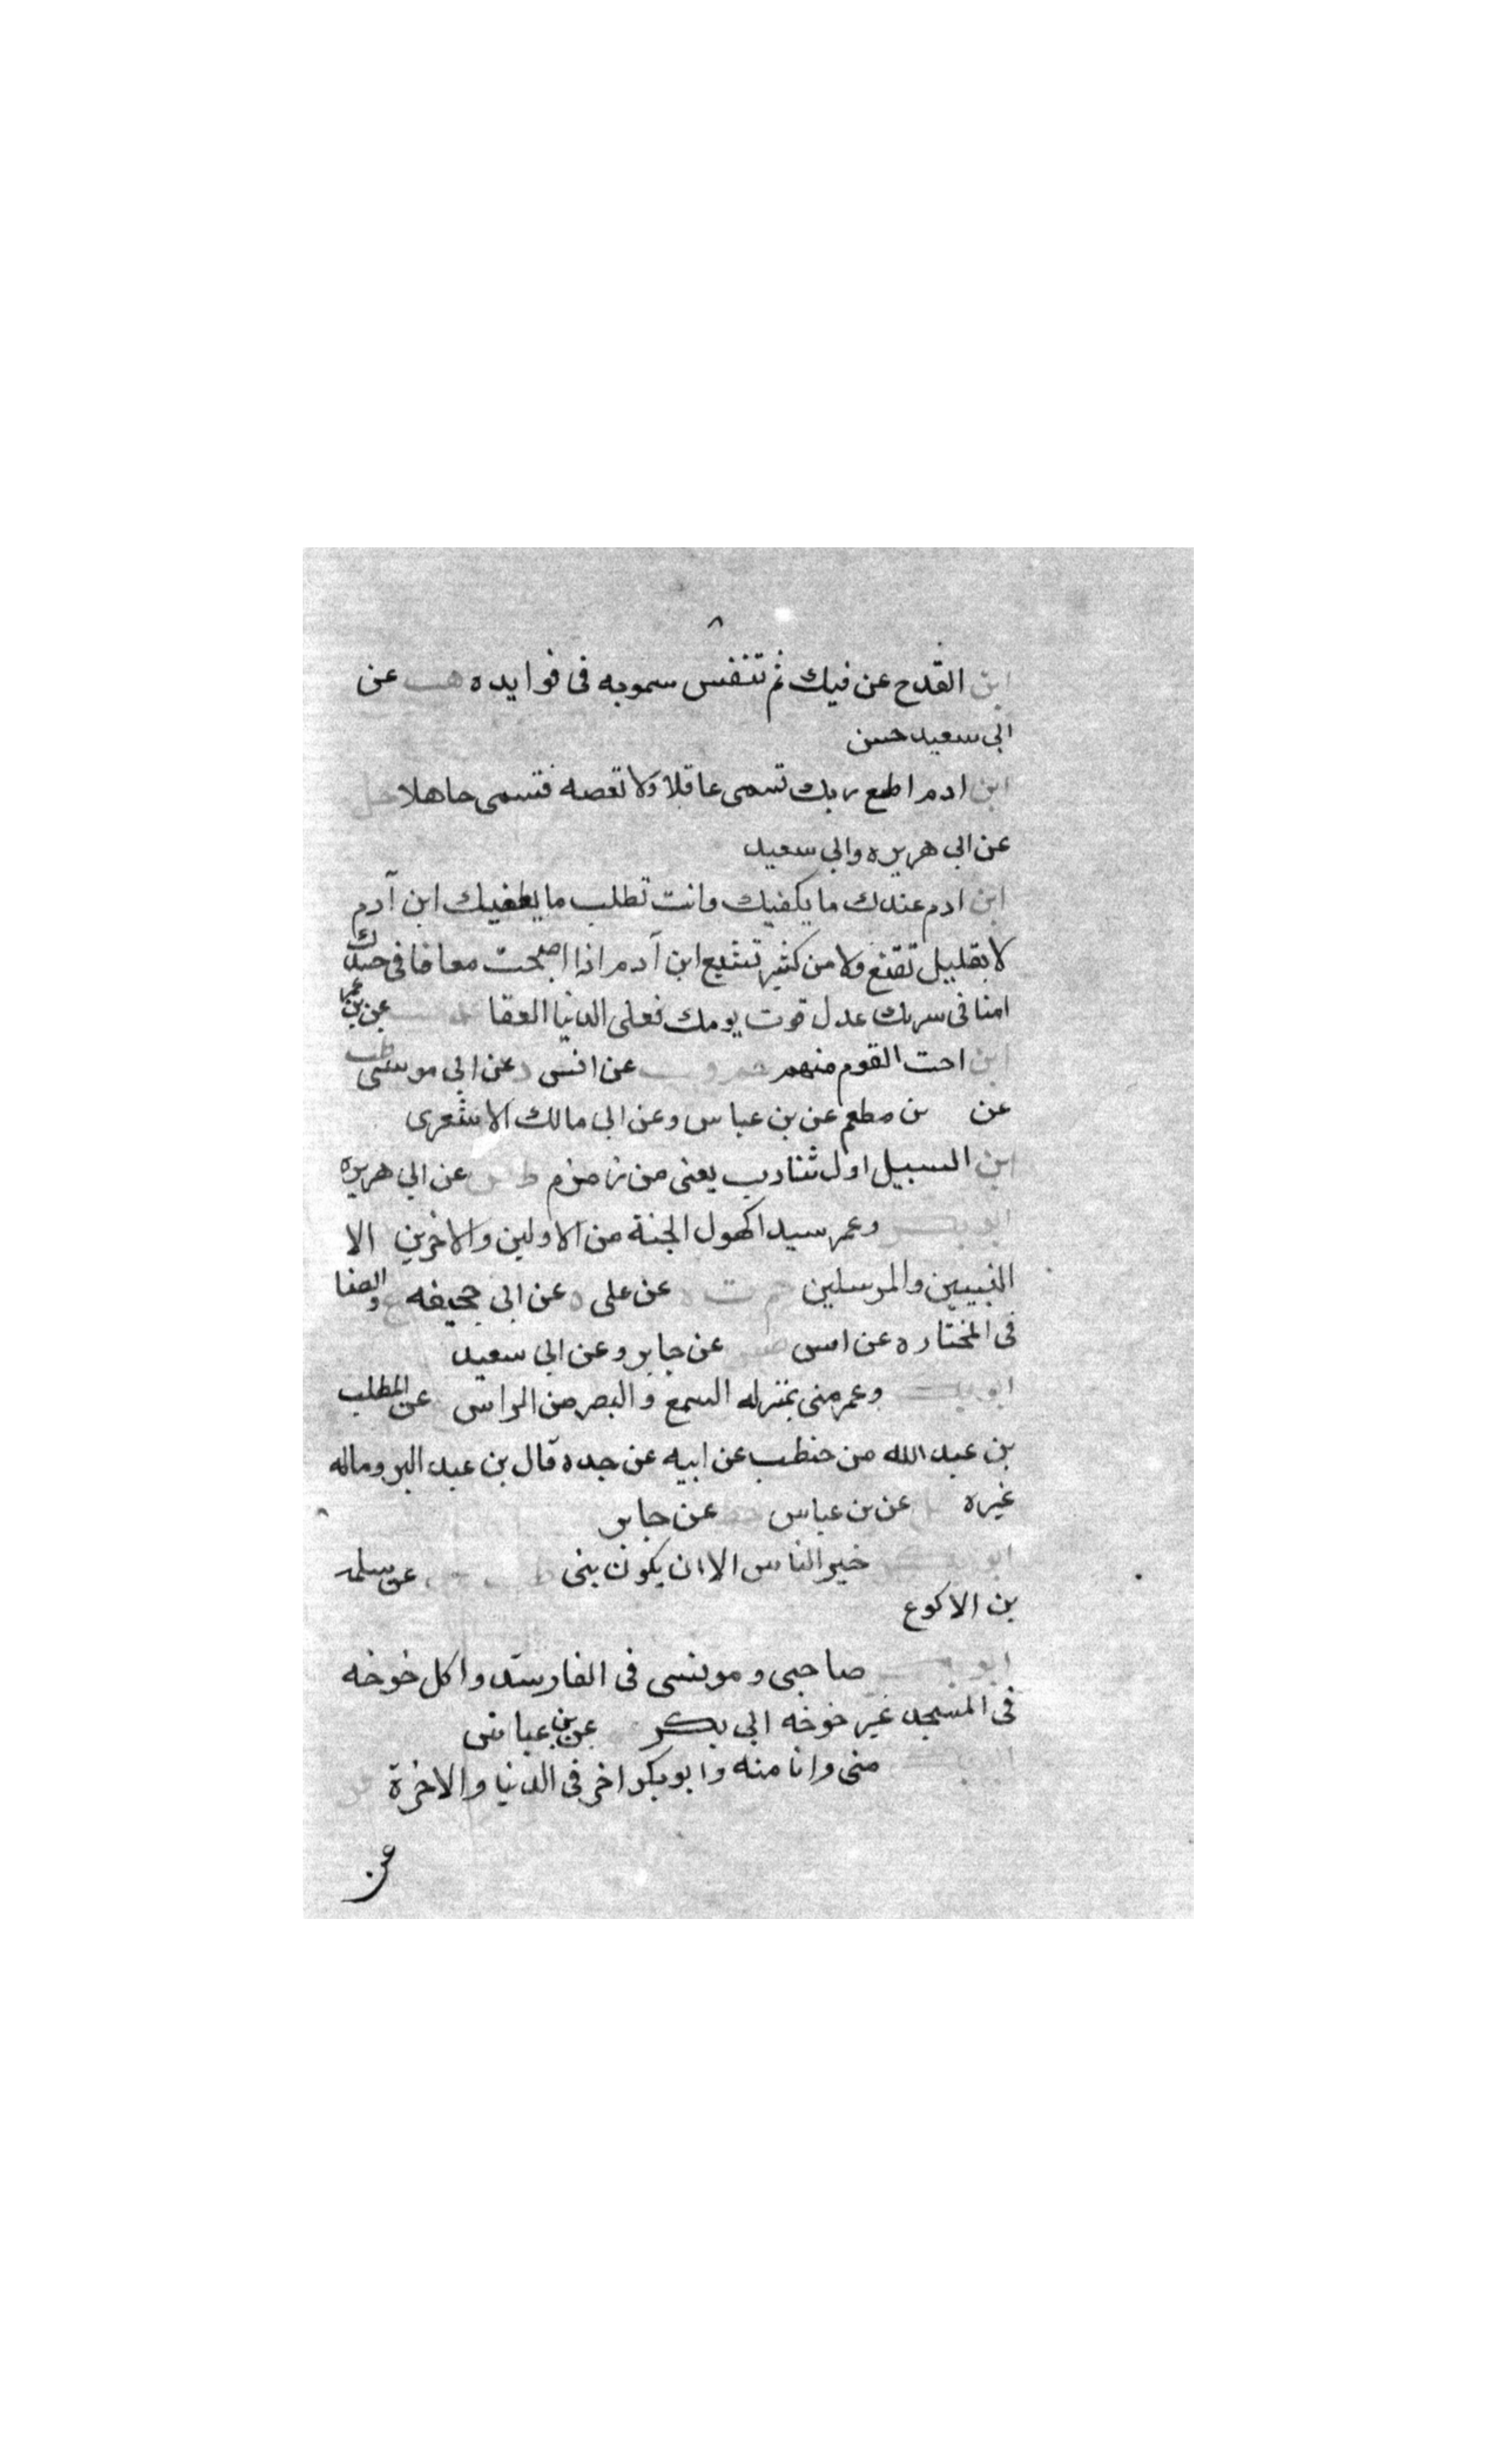 ٨
ابن القدح عن فيك ثم تنفس سمويه فى فوايده هب عن
ابى سعيد حسن
ابن ادم اطع ربك تسمى عاقلا ولا تعصه فتسمى جاهلا حل
عن ابى هريره وابى سعيد
ابن ادم عندك ما يكفيك وانت تطلب ما يطغيك ابن آدم
لا بقليل تقنع ولا من كثير تشبع ابن آدم اذا اصبحت معافا فى جسدك
امنا فى سربك عدل قوت يومك فعلى الدنيا العفا عن بن عمر
ابن احت القوم منهم عن انس د عن ابى موسى طب
عن بن مطعم عن بن عباس وعن ابى مالك الاشعرى
ابن السبيل اول شارب يعنى من زمزم طص عن ابى هريره
ابو بكر وعمر سيدا كهول الجنة من الاولين والاخرين الا
النبيين والمرسلين حم ت ه عن على ه عن ابى جحيفه ع والضيا
فى المختاره عن انس طس عن جابر وعن ابى سعيد
ابو بكر وعمر منى بمنزله السمع والبصر من الراس عن المطلب
بن عبد الله من حنطب عن ابيه عن جده قال بن عبد البر وماله
غيره حل عن بن عباس خط عن جابر
ابو بكر خير الناس الا ان يكون بنى طب عن سلمه
بن الاكوع
ابو بكر صاحبى ومونسى فى الغار سدوا كل خوخه
فى المسجد غير خوخه ابى بكر عن بن عباس
ابو بكر منى وانا منه وابو بكر اخى فى الدنيا والاخرة
عن